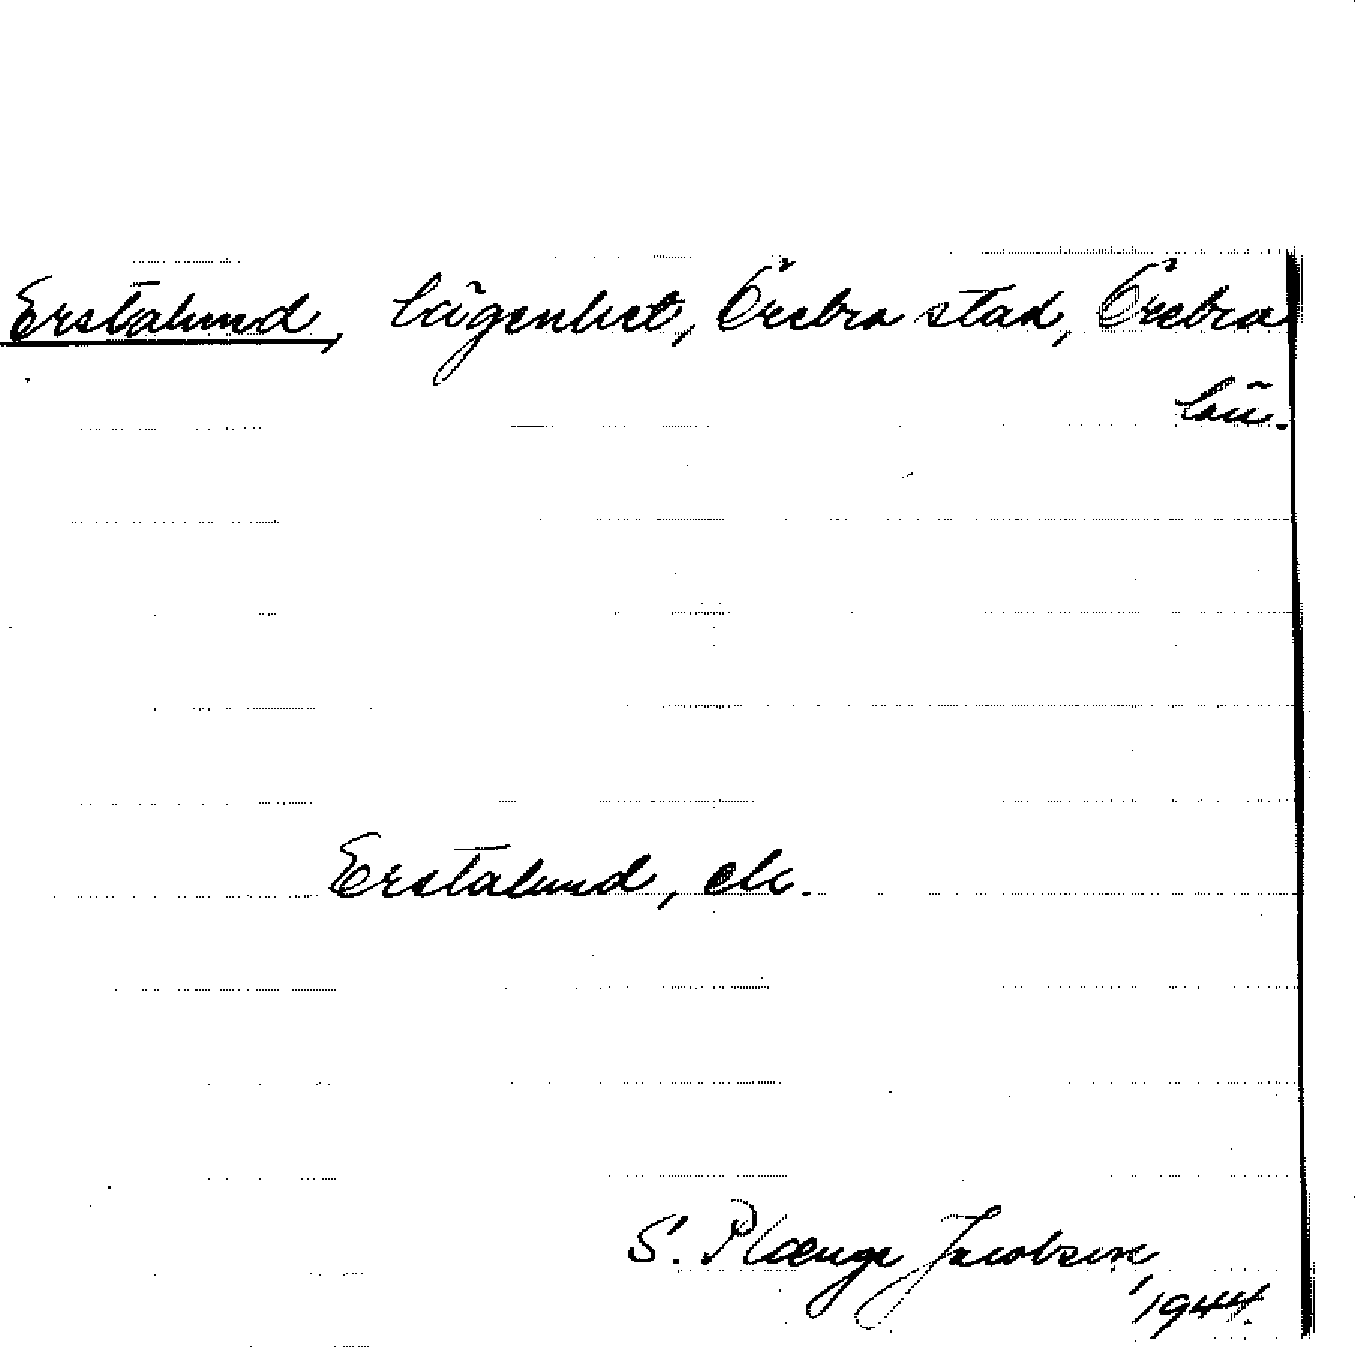 Erstalund, lägenhet, Örebro stad, Örebro
län.
Erstalund, ek.
S. Plænge Jacobsen,
1944.